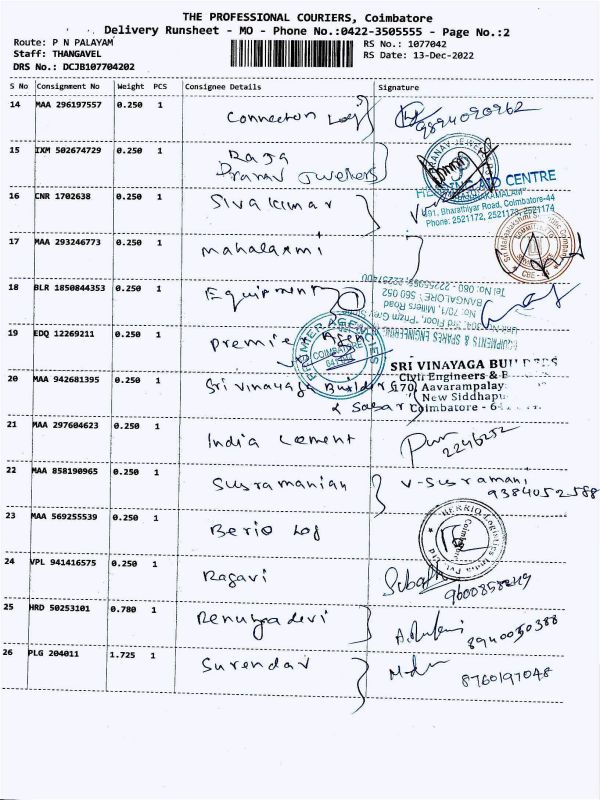 THE PROFESSIONAL COURIERS, Coimbatore
Delivery Runsheet - MO - Phone No.:0422-3505555 - Page No.:2
Route: P N PALAYAM
RS No.: 1077042
Staff: THANGAVEL
RS Date: 13-Dec-2022
DRS No.: DCJB107704202
S No Consignment No Weight PCS Consignee Details Signature
14 MAA 296197557 0.250 1 Connection Log 9894090962
15 IXM 502674729 0.250 1 Raja
Pranav Jwellers
HEARING AID CENTRE
491, Bharathiyar Road, Coimbatore-44
Phone: 2521172, 2521173, 2521174
16 CNR 1702638 0.250 1 Siva Kumar
17 MAA 293246773 0.250 1 Mahalaxmi
CBE
18 BLR 1850844353 0.250 1 Equipment 1
EQUIPMENTS & SPARES ENGINEERING
No: 70/1, Millers Road
BANGALORE 560 052
19 EDQ 12269211 0.250 1 Premier Agen
PREMIER AGENCIES
COIMBATORE
20 MAA 942681395 0.250 1 Sri Vinayaga Builders
SRI VINAYAGA BUILDERS
Civil Engineers &
170, Aavarampalay
New Siddhapu
Coimbatore - 64
21 MAA 297604623 0.250 1 India Cement 2246252
22 MAA 858190965 0.250 1 Susramanian V-Susramani
9384052588
23 MAA 569255539 0.250 1 Berio Log
24 VPL 941416575 0.250 1 Ragavi
25 HRD 50253101 0.780 1 Renugadevi
26 PLG 204011 1.725 1 Surendar 8760197048